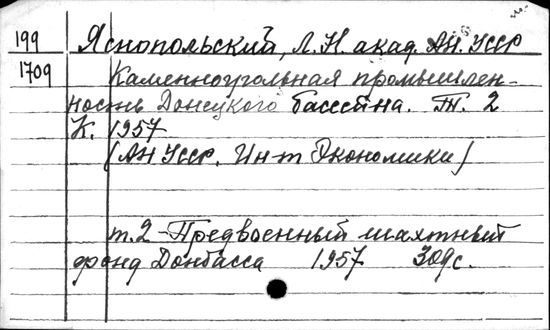 199 Яснопольский, Л.Н. акад. АН УССР
1709 Каменноугольная промышлен-
ность Донецкого бассейна. Т. 2
К. 1957
(АН УССР. Ин-т Экономики)
т.2 - Предвоенный шахтный
фонд Донбасса 1957 309с.